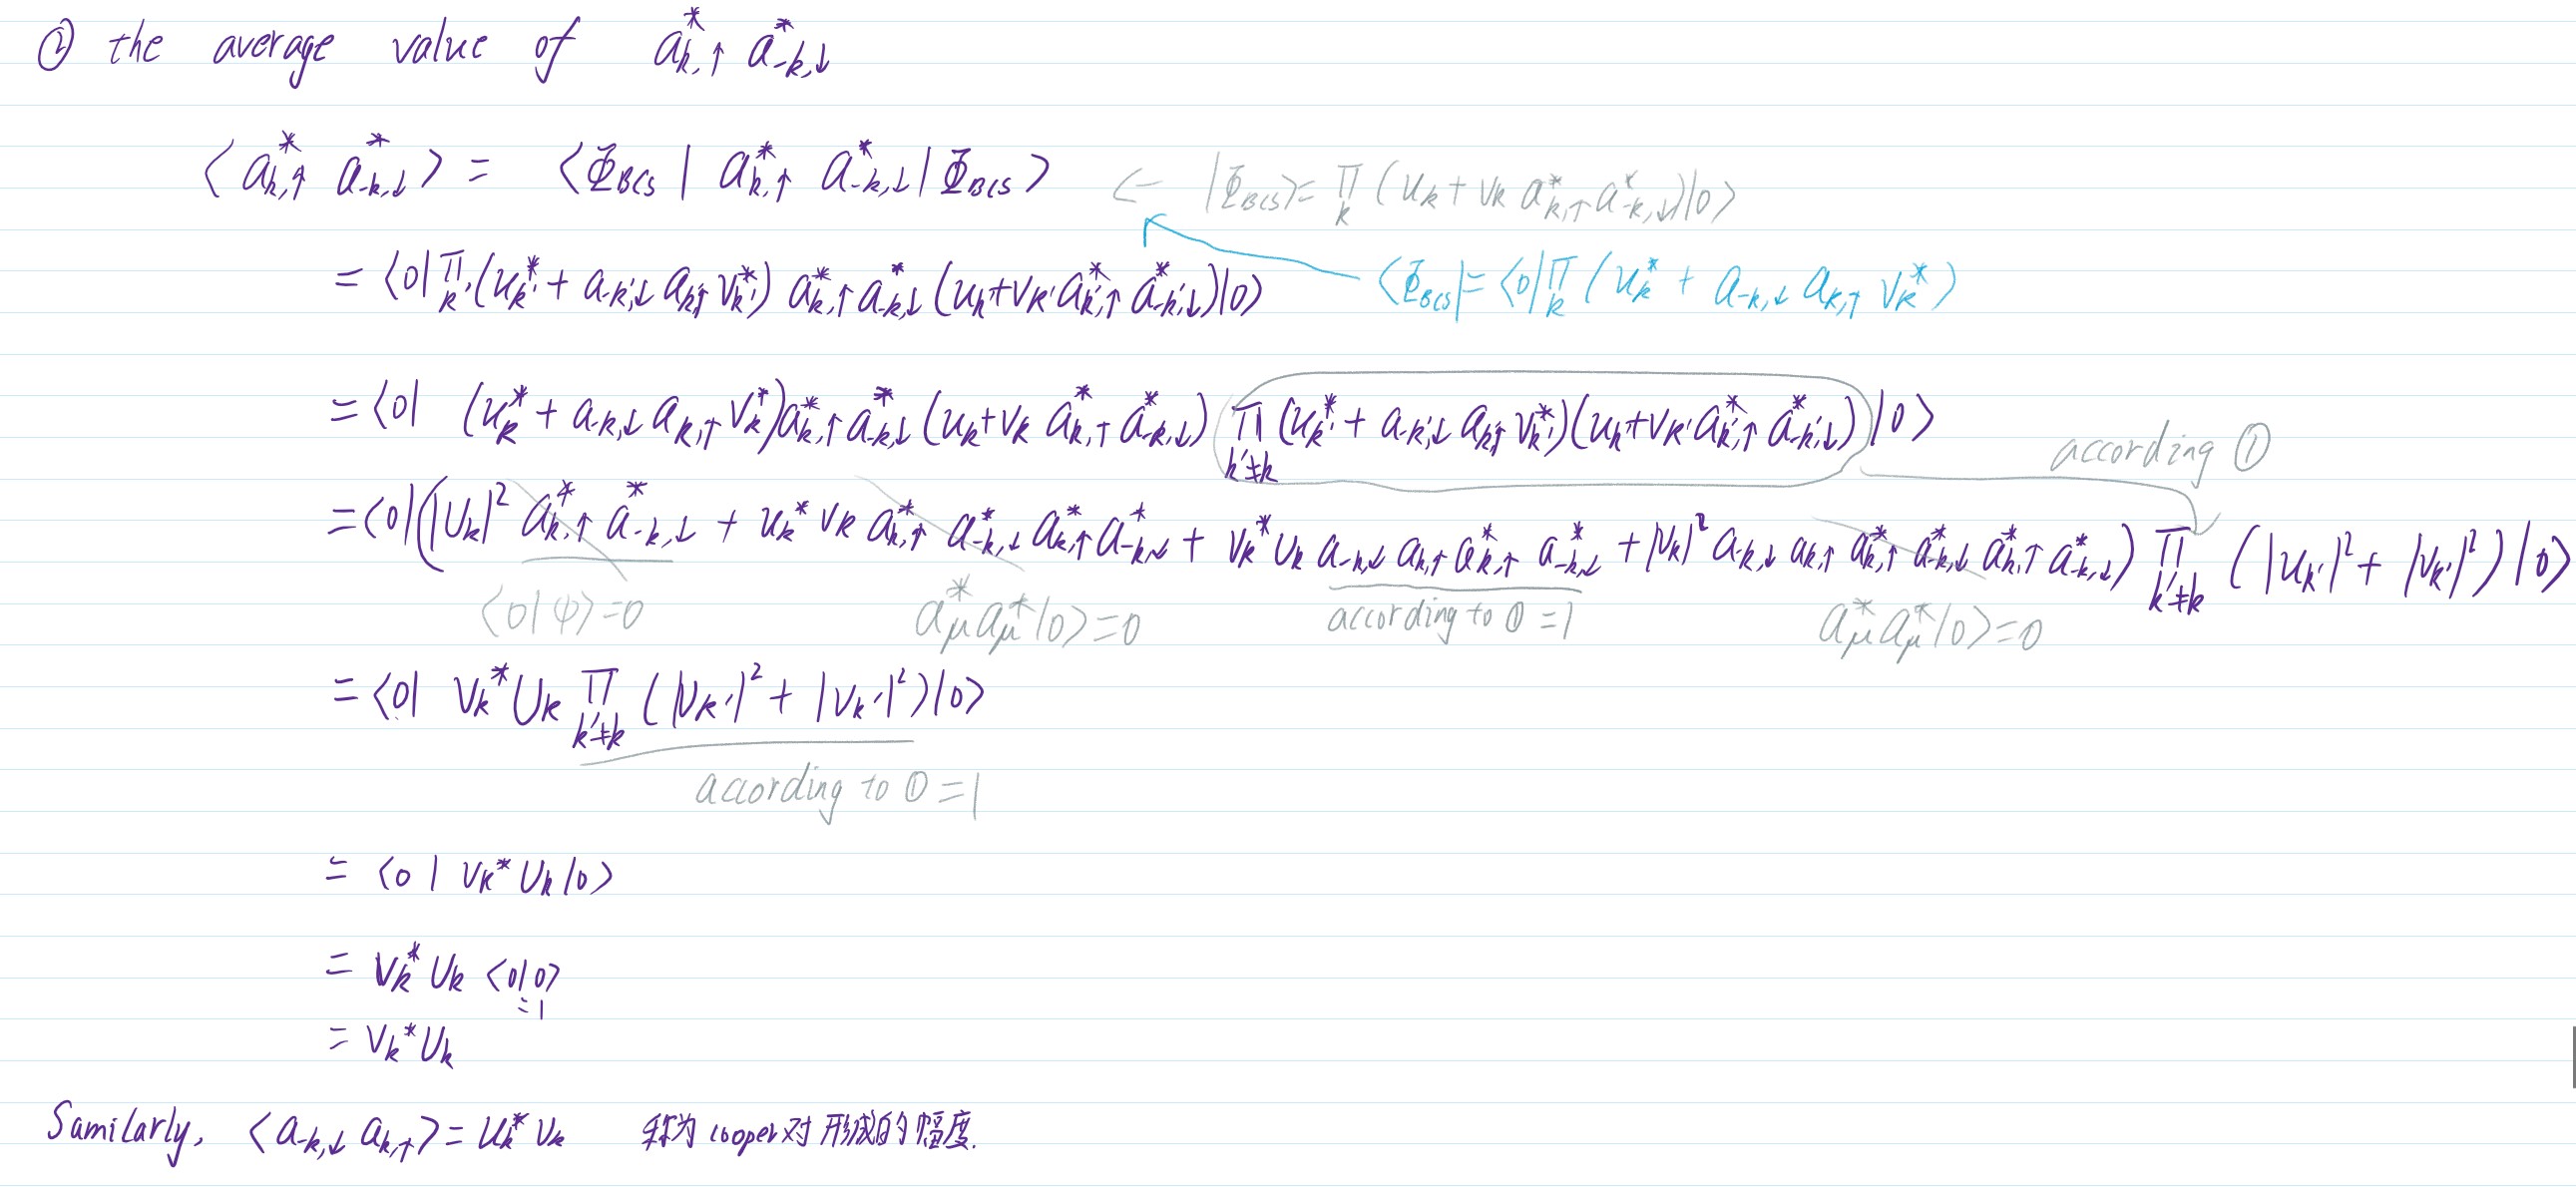 ② the average value of a*k,↑ a*-k,↓
⟨a*k,↑ a*-k,↓⟩ = ⟨Φ_BCS | a*k,↑ a*-k,↓ | Φ_BCS⟩ ← |Φ_BCS⟩ = ∏_k (u_k + v_k a*k,↑ a*-k,↓)|0⟩
= ⟨0| ∏_k' (u*k' + a-k',↓ ak',↑ v*k') a*k,↑ a*-k,↓ (uk' + vk' a*k',↑ a*-k',↓)|0⟩ ⟨Φ_BCS| = ⟨0| ∏_k (u*k + a-k,↓ ak,↑ v*k)
= ⟨0| (u*k + a-k,↓ ak,↑ v*k) a*k,↑ a*-k,↓ (uk + vk a*k,↑ a*-k,↓) ∏_k'≠k (u*k' + a-k',↓ ak',↑ v*k')(uk' + vk' a*k',↑ a*-k',↓)|0⟩
according ①
= ⟨0|(|Uk|² a*k,↑ a*-k,↓ + uk* vk a*k,↑ a*-k,↓ a*k,↑ a*-k,↓ + vk* uk a-k,↓ ak,↑ a*k,↑ a*-k,↓ + |vk|² a-k,↓ ak,↑ a*k,↑ a*-k,↓ a*k,↑ a*-k,↓) ∏_k'≠k (|uk'|² + |vk'|²)|0⟩
⟨0|ψ⟩=0 a*μ a*μ|0⟩=0 according to ① =1 a*μ a*μ|0⟩=0
= ⟨0| vk* Uk ∏_k'≠k (|Uk'|² + |vk'|²)|0⟩
according to ① =1
= ⟨0| vk* Uk |0⟩
= vk* Uk ⟨0|0⟩
=1
= vk* Uk
Samilarly, ⟨a-k,↓ ak,↑⟩ = uk* vk 称为 cooper对 形成的幅度.